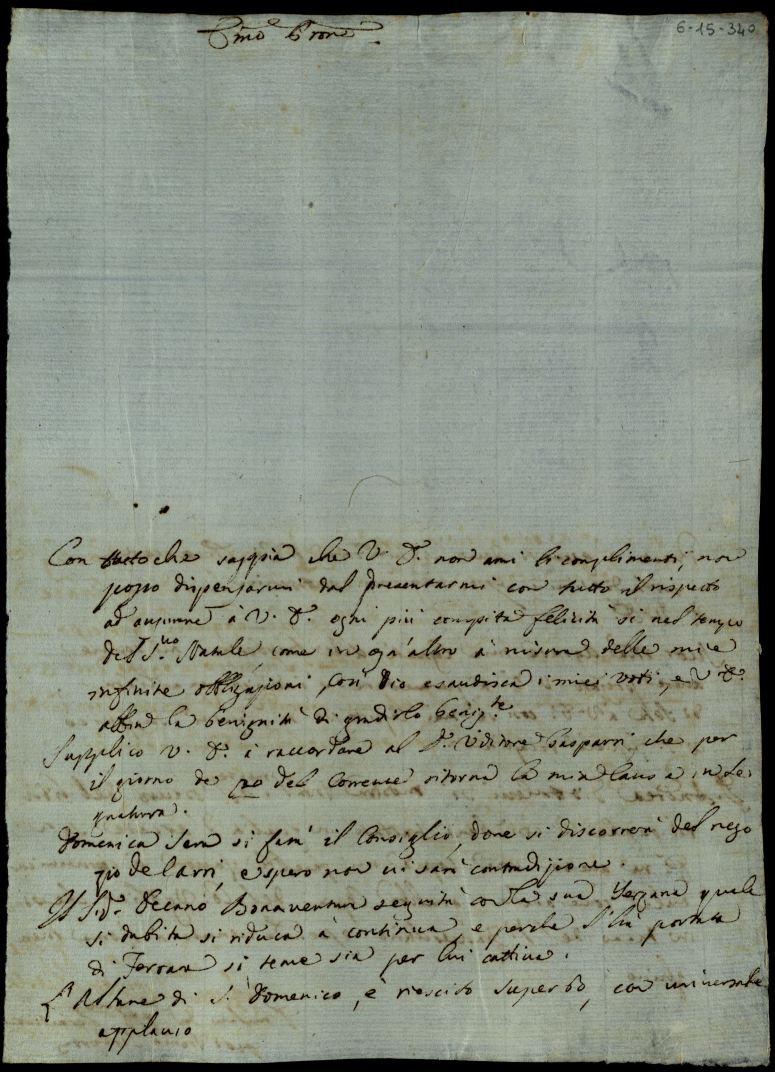 6-15-340
Con tutto che sappia che V. S. non ami li complimenti, non
posso dispensarmi dal presentarmi con tutto il rispetto
ad augurare à V. S. ogni più compita felicità si nel tempo
del S.mo Natale come in ogn'altro a misura delle mie
infinite obbligazioni, Così Dio esaudisca i miei voti, e V. S.
abbia la benignità di gradirlo benig.te
Supplico V. S. à raccordare al S. Uditore Gasparri che per
il giorno de 20 del Corrente ritorna la mia causa in Se
gnatura.
Domenica sera si farà il Consiglio, dove si discorrerà del nego
zio de Carri, e spero non vi sarà contradizione.
Il Sig.r Decano Bonaventura seguita con la sua Terzana quale
si dubita si riduca à continua, e perche l'hà portata
di Ferrara si teme sia per lui cattiva.
L'Altare di S. Domenico, è riescito superbo, con universale
applauso